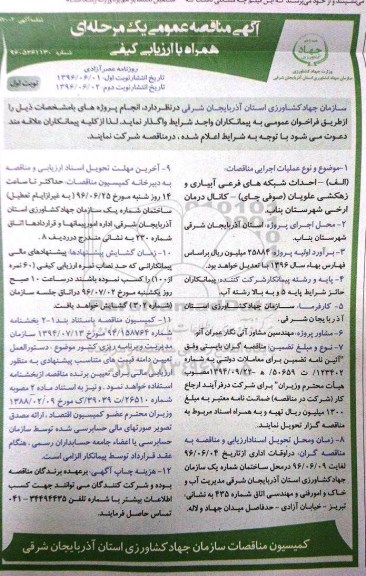 آگهی مناقصه عمومی یک مرحله‌ای
همراه با ارزیابی کیفی
جهاد
وزارت جهاد کشاورزی
سازمان جهاد کشاورزی استان آذربایجان شرقی
روزنامه عصر آزادی
تاریخ انتشار نوبت اول: ۱۳۹۶/۰۶/۰۱
تاریخ انتشار نوبت دوم: ۱۳۹۶/۰۶/۰۲
نوبت اول
سازمان جهاد کشاورزی استان آذربایجان شرقی در نظر دارد، انجام پروژه های بامشخصات ذیل را
از طریق فراخوان عمومی به پیمانکاران واجد شرایط واگذار نماید. لذا از کلیه پیمانکاران علاقه مند
دعوت می شود با توجه به شرایط اعلام شده ، در مناقصه شرکت نمایند.
۱-موضوع و نوع عملیات اجرایی مناقصات:
(الف) – احداث شبکه های فرعی آبیاری و
زهکشی علویان (صوفی چای) – کانال درمان
ارخی شهرستان بناب.
۲- محل اجرای پروژه: استان آذربایجان شرقی
شهرستان بناب.
۳- برآورد اولیه پروژه: ۲۵۸۸۴ میلیون ریال براساس
فهارس بهاء سال ۱۳۹۶ با تعدیل خواهد بود.
۴- پایه و رشته پیمانکار شرکت کننده: پیمانکاران
حائز شرایط پایه ۵ و به بالا رشته آب
۵- کارفرما: سازمان جهاد کشاورزی استان
آذربایجان شرقی.
۶- مشاور پروژه: مهندسین مشاور آبی نگار عمران آتو.
۷- نوع و مبلغ تضمین: مناقصه گران بایستی وفق
"آئین نامه تضمین برای معاملات دولتی به شماره
۱۲۳۴۰۲/ت ۵۰۶۵۹ ه – ۱۳۹۴/۰۹/۲۲ مصوب
هیأت محترم وزیران" برای شرکت در فرآیند ارجاع
کار (شرکت در مناقصه) ضمانت نامه معتبر به مبلغ
۱۳۰۰ میلیون ریال تهیه و به همراه اسناد مربوط به
مناقصه گزار تحویل نمایند.
۸- زمان و محل تحویل اسناد ارزیابی و مناقصه به
مناقصه گران: در اوقات اداری از تاریخ ۹۶/۰۶/۰۴
لغایت ۹۶/۰۶/۰۹ در محل ساختمان شماره یک سازمان
جهاد کشاورزی استان آذربایجان شرقی مدیریت آب و
خاک و امور فنی و مهندسی اتاق شماره ۴۳۵ به نشانی:
تبریز – خیابان آزادی – حدفاصل میدان جهاد و لاله.
۹- آخرین مهلت تحویل اسناد ارزیابی و مناقصه
به دبیرخانه کمیسیون مناقصات: حداکثر تا ساعت
۱۴ روز شنبه مورخ ۹۶/۰۶/۲۵ (به غیر از ایام تعطیل)
ساختمان شماره یک سازمان جهاد کشاورزی استان
آذربایجان شرقی، اداره امور پیمانها و قراردادها اتاق
شماره ۲۳۰ به نشانی مندرج در ردیف ۸.
۱۰- زمان گشایش پیشنهادها: پیشنهادهای مالی
پیمانکارانی که حد نصاب نمره ارزیابی کیفی (۶۰ نمره
از ۱۰۰) را کسب نموده باشند در ساعت ۱۰ صبح
روز یکشنبه مورخ ۹۶/۰۷/۰۲ در اتاق جلسه سازمان
(شماره ۳۰۲) گشایش خواهد یافت.
۱۱- کمیسیون مناقصه باستناد بند ۱-۲ بخشنامه
شماره ۹۴/۱۵۸۷۶۴ مورخ ۱۳۹۴/۰۷/۱۳ سازمان
مدیریت و برنامه ریزی کشور موضوع : دستورالعمل
تعیین دامنه قیمت های متناسب پیشنهادی به منظور
ارزیابی مالی برای تعیین برنده مناقصه، از بخشنامه
استفاده خواهد نمود . و نیز به استناد ماده ۲ مصوبه
شماره ۲۶۵۱۰/ت ۳۹۰۳۹ک مورخ ۱۳۸۸/۰۲/۰۹
وزیران محترم عضو کمیسیون اقتصاد ، ارائه مصدق
تصویر صورتهای مالی حسابرسی شده توسط سازمان
حسابرسی یا اعضاء جامعه حسابداران رسمی ، هنگام
عقد قرارداد توسط پیمانکار الزامی است.
۱۲- هزینه چاپ آگهی بر عهده برندگان مناقصه
بوده و شرکت کنندگان می توانند جهت کسب
اطلاعات بیشتر با شماره تلفن ۳۴۴۹۴۴۳۵ – ۰۴۱
تماس حاصل فرمایند.
کمیسیون مناقصات سازمان جهاد کشاورزی استان آذربایجان شرقی